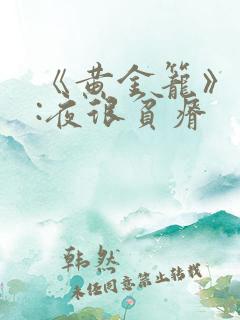 《黄金笼》
:夜很贫瘠
韩然
未经同意禁止转载